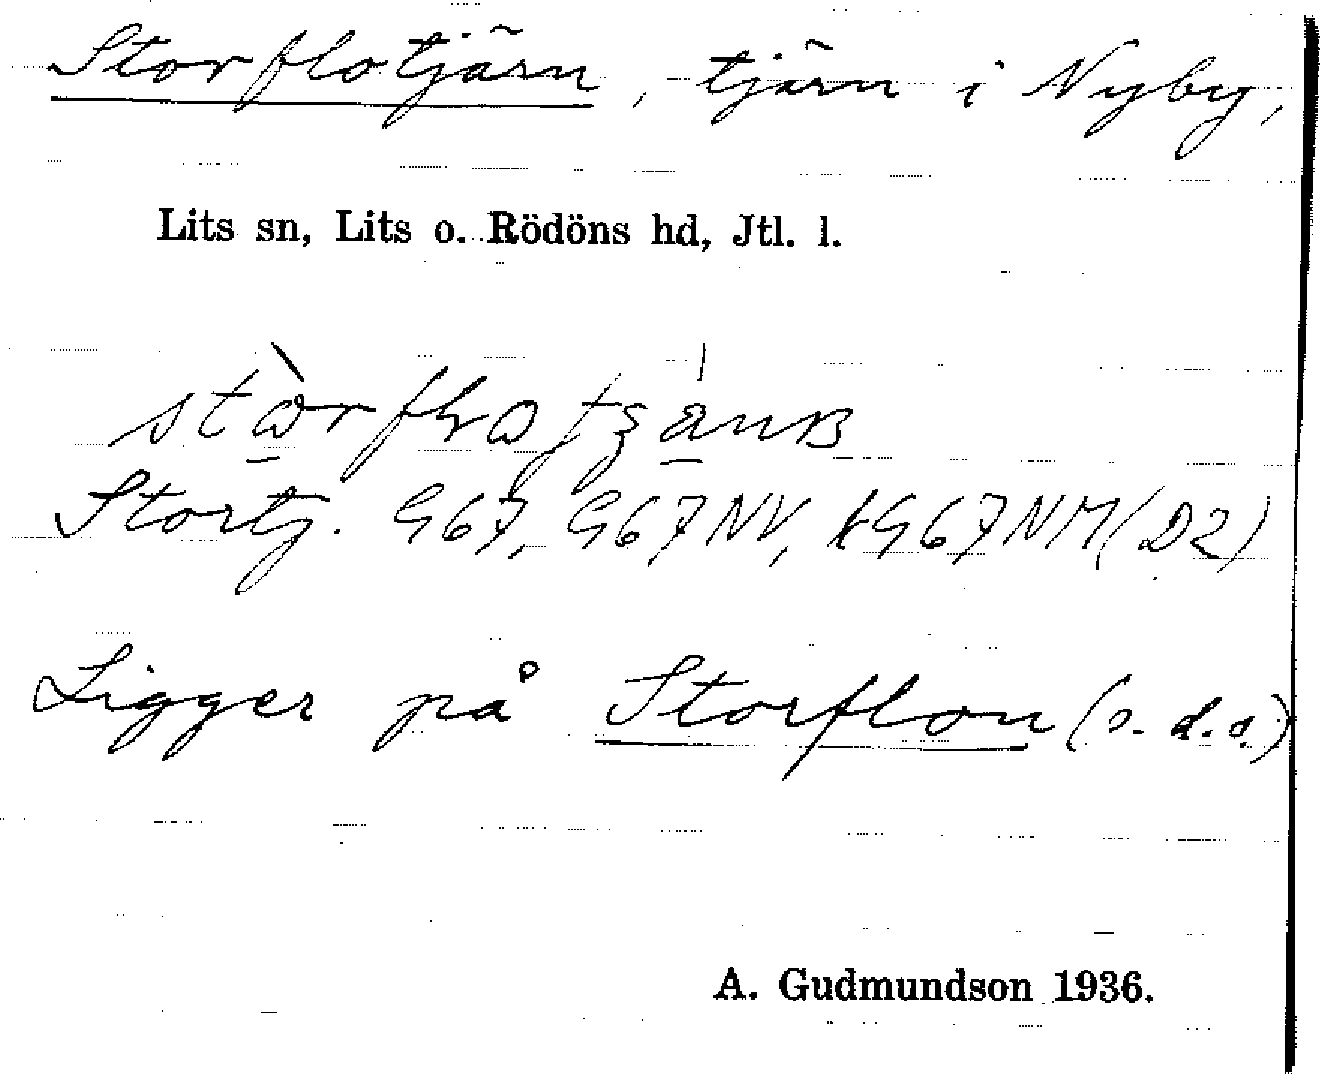 Storflotjärn, tjärn i Nyby,
Lits sn, Lits o. Rödöns hd, Jtl. l.
Stortj. G67, G67NV, kG67NM(D2)
Ligger på Storflon (s. d. o.)
A. Gudmundson 1936.